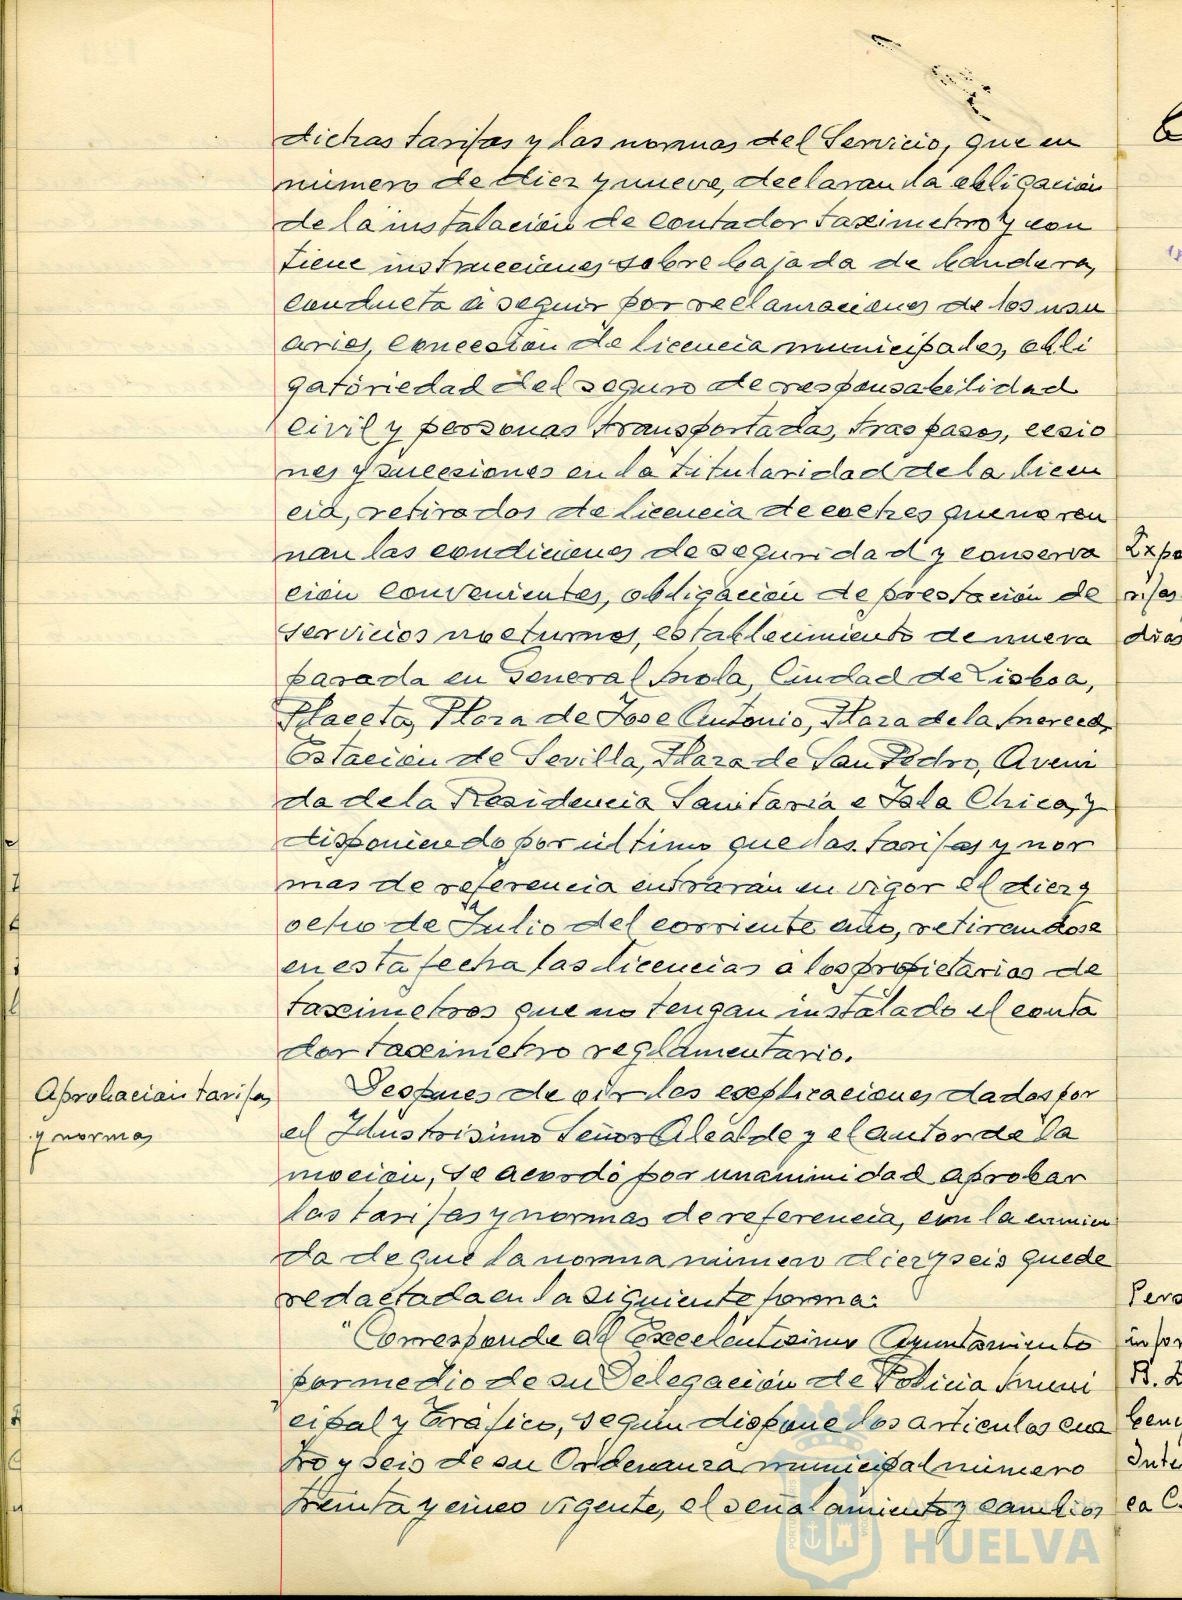 dichas tarifas y las normas del Servicio, que en
número de diez y nueve, declaran la obligación
de la instalación de contador taximetro y con
tiene instrucciones sobre bajada de bandera,
conducta a seguir por reclamaciones de los usu
arios, concesión de licencia municipales, obli
gatoriedad del seguro de responsabilidad
civil y personas transportadas, traspasos, cesio
nes y sucesiones en la titularidad de la licen
cia, retirados de licencia de coches que no reu
nan las condiciones de seguridad y conserva
ción convenientes, obligación de prestación de
servicios nocturnos, establecimiento de nueva
parada en General Mola, Ciudad de Lisboa,
Placeta, Plaza de Jose Antonio, Plaza de la Merced,
Estación de Sevilla, Plaza de San Pedro, Aveni
da de la Residencia Sanitaria e Isla Chica, y
disponiendo por último que las tarifas y nor
mas de referencia entrarán en vigor el diez y
ocho de Julio del corriente año, retirandose
en esta fecha las licencias a los propietarios de
taximetros que no tengan instalado el conta
dor taximetro reglamentario.
Aprobación tarifas
y normas
Despues de oir las explicaciones dadas por
el Ilustrisimo Señor Alcalde y el autor de la
moción, se acordó por unanimidad aprobar
las tarifas y normas de referencia, con la enmien
da de que la norma número diez y seis quede
redactada en la siguiente forma:
"Corresponde al Excelentisimo Ayuntamiento
por medio de su Delegación de Policia Muni
cipal y Tráfico, según dispone los articulos cua
tro y seis de su Ordenanza municipal número
treinta y cinco vigente, el señalamiento y cambios
Expo
rifas
dias
Pers
infor
Inte
HUELVA